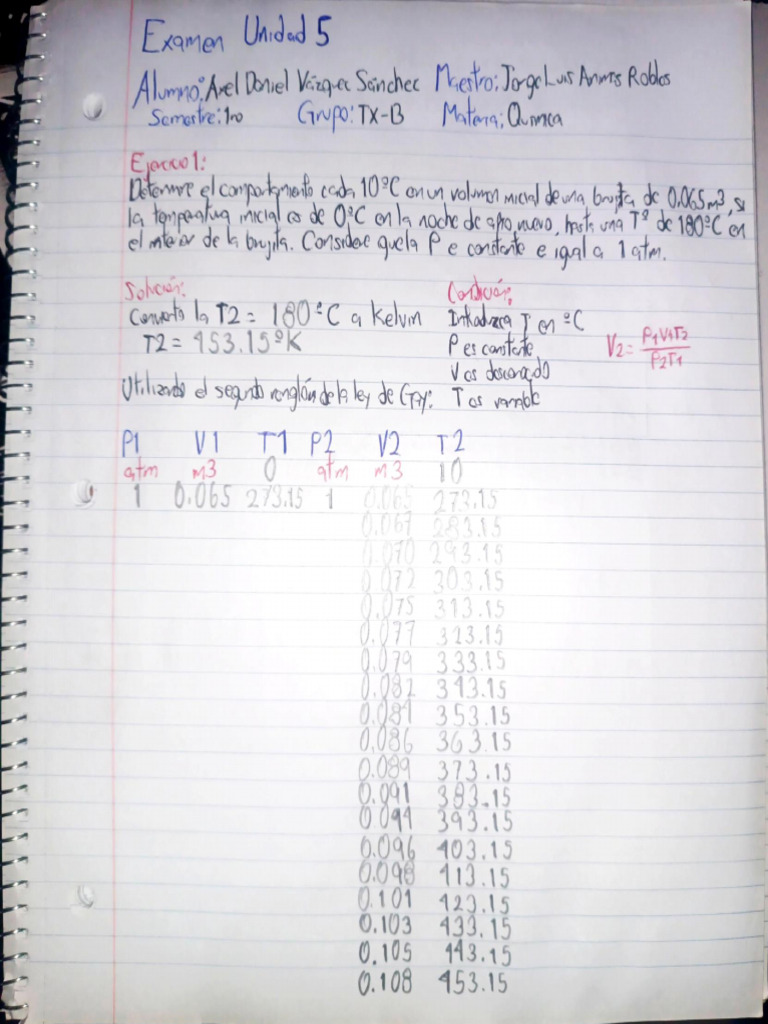 Examen Unidad 5
Alumno: Axel Daniel Vázquez Sánchez Maestro: Jorge Luis Armas Robles
Semestre: 1ro Grupo: TX-B Materia: Química
Ejercicio 1:
Determine el comportamiento cada 10°C en un volumen inicial de una brujita de 0.065 m3, si
la temperatura inicial es de 0°C en la noche de año nuevo, hasta una T° de 180°C en
el interior de la brujita. Considere que la P e constante e igual a 1 atm.
Solución: Condición:
Convierto la T2 = 180°C a Kelvin Introduzca T en °C
T2 = 453.15°K P es constante V2 = P1V1T2 / P2T1
V es desconocido
Utilizando el segundo renglón de la ley de Gay: T es variable
P1 V1 T1 P2 V2 T2
atm m3 0 atm m3 10
1 0.065 273.15 1 0.065 273.15
0.067 283.15
0.070 293.15
0.072 303.15
0.075 313.15
0.077 323.15
0.079 333.15
0.082 343.15
0.084 353.15
0.086 363.15
0.089 373.15
0.091 383.15
0.094 393.15
0.096 403.15
0.098 413.15
0.101 423.15
0.103 433.15
0.105 443.15
0.108 453.15